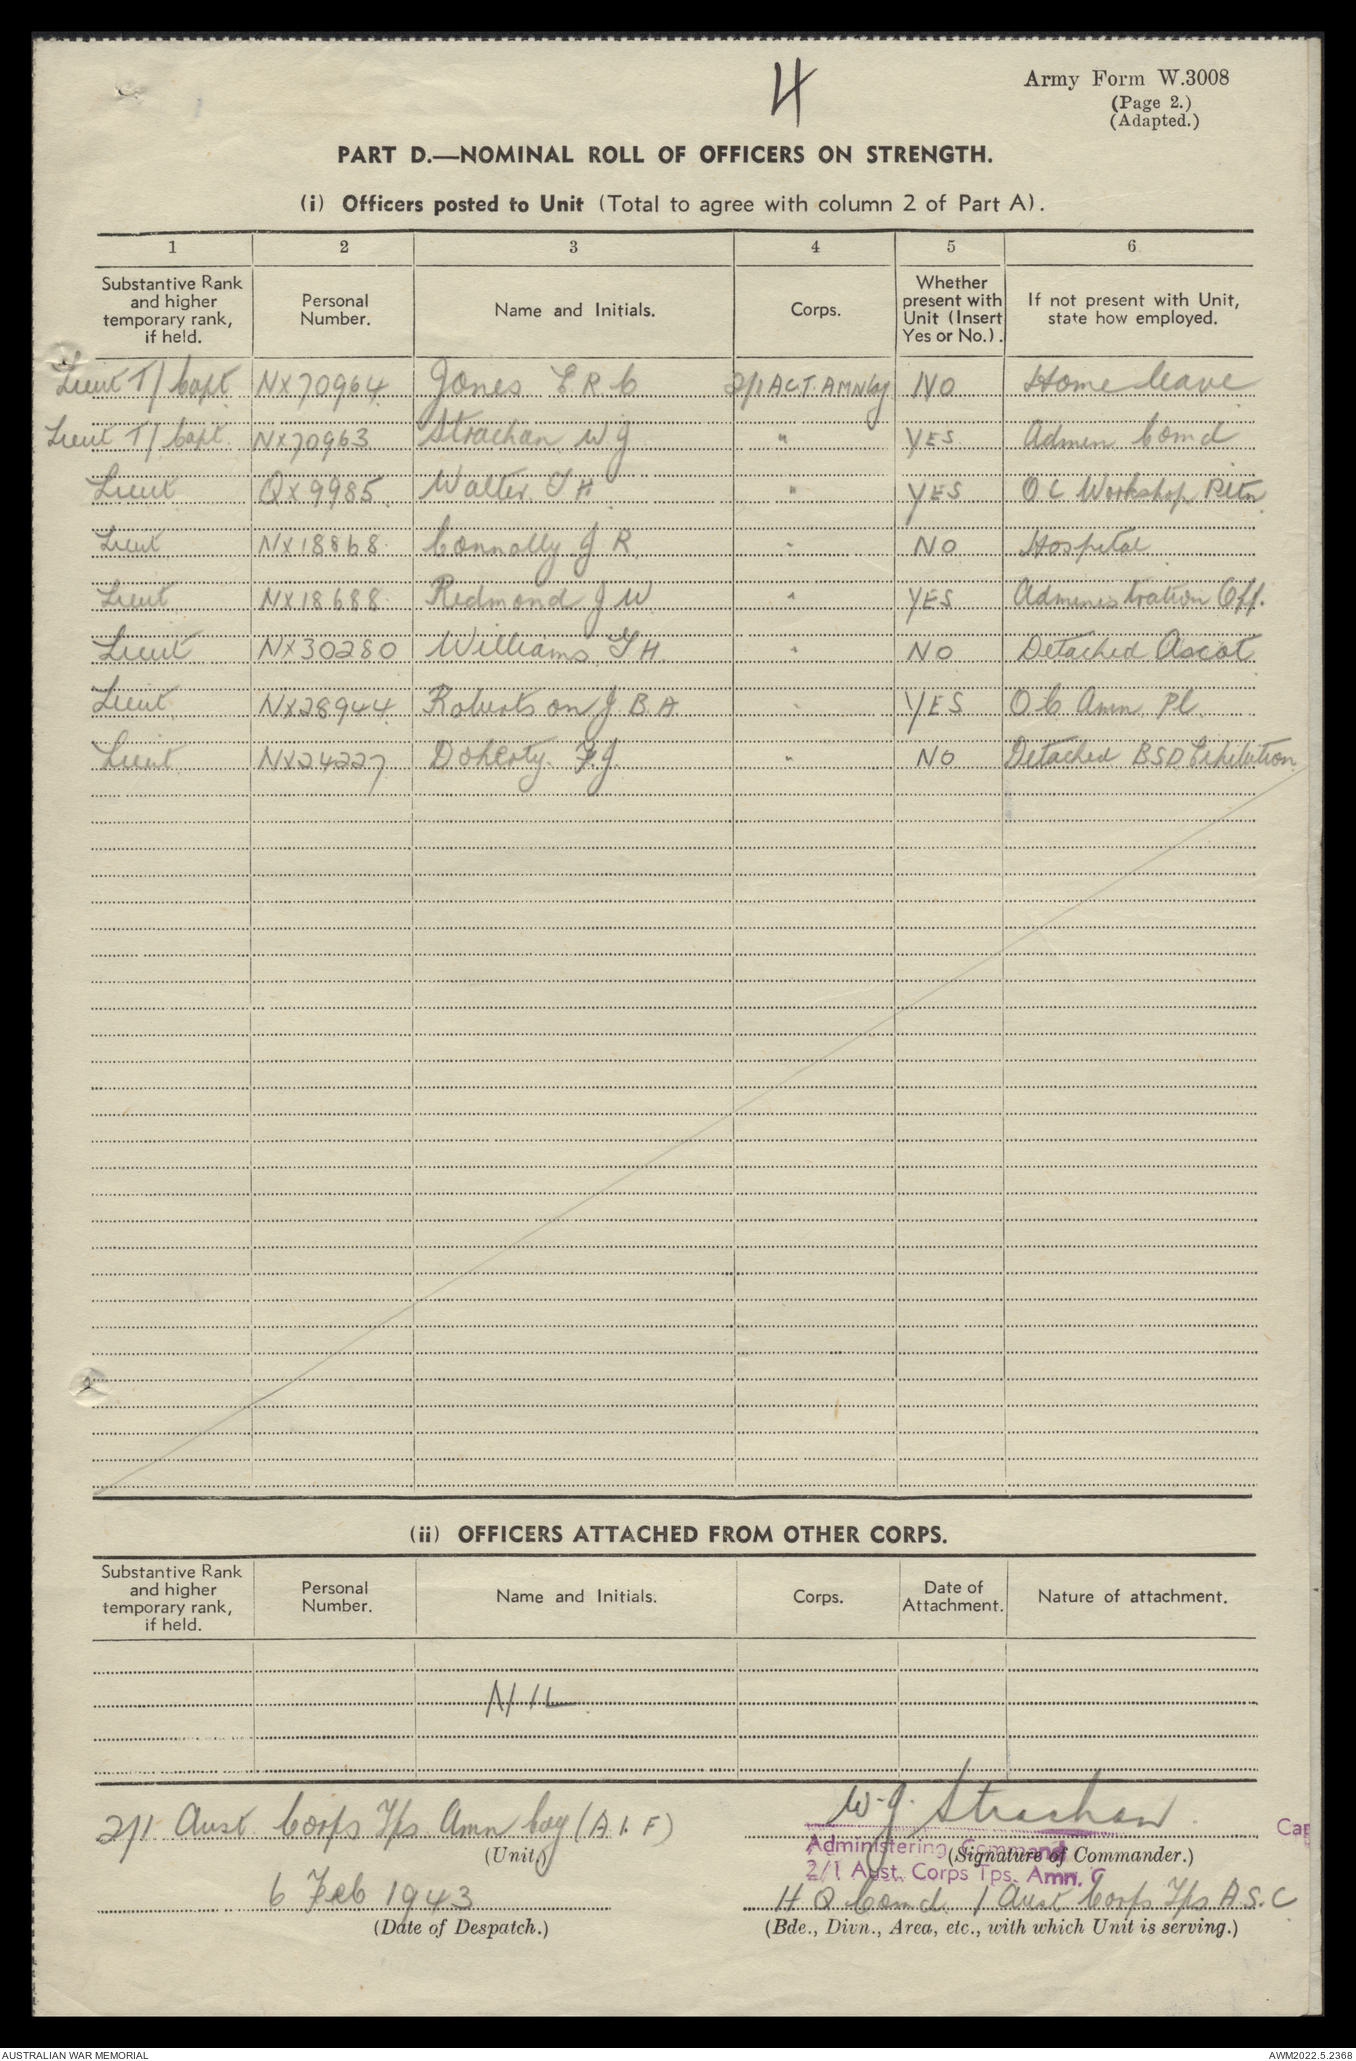 4
Army Form W.3008
(Page 2.)
(Adapted.)
PART D.—NOMINAL ROLL OF OFFICERS ON STRENGTH.
(i) Officers posted to Unit (Total to agree with column 2 of Part A).
1 2 3 4 5 6
Substantive Rank and higher temporary rank, if held. Personal Number. Name and Initials. Corps. Whether present with Unit (Insert Yes or No.). If not present with Unit, state how employed.
Lieut T/Capt NX70964 Jones E R C 2/1 ACT. AMN Coy NO Home leave
Lieut T/Capt. NX70963 Strachan W J " YES Admin Comd
Lieut QX9985 Walter T H " YES O C Workshop Pltn
Lieut NX18868 Connolly J R. " NO Hospital
Lieut NX18688 Redmond J W. " YES Administration Off.
Lieut NX30280 Williams T H. " NO Detached Ascot
Lieut NX28944 Robertson J B. A. " YES O C Amn Pl.
Lieut NX24227 Doherty. F. J. " NO Detached BSD Exhibition
(ii) OFFICERS ATTACHED FROM OTHER CORPS.
Substantive Rank and higher temporary rank, if held. Personal Number. Name and Initials. Corps. Date of Attachment. Nature of attachment.
NIL
2/1 Aust Corps Tps Amn Coy (A I F) W. J. Strachan
Cap
Administering Command
(Unit) (Signature of Commander.)
2/1 Aust. Corps Tps. Amn. C
6 Feb 1943 H Q Comd 1 Aust Corps Tps A.S.C
(Date of Despatch.) (Bde., Divn., Area, etc., with which Unit is serving.)
AUSTRALIAN WAR MEMORIAL AWM2022.5.2368